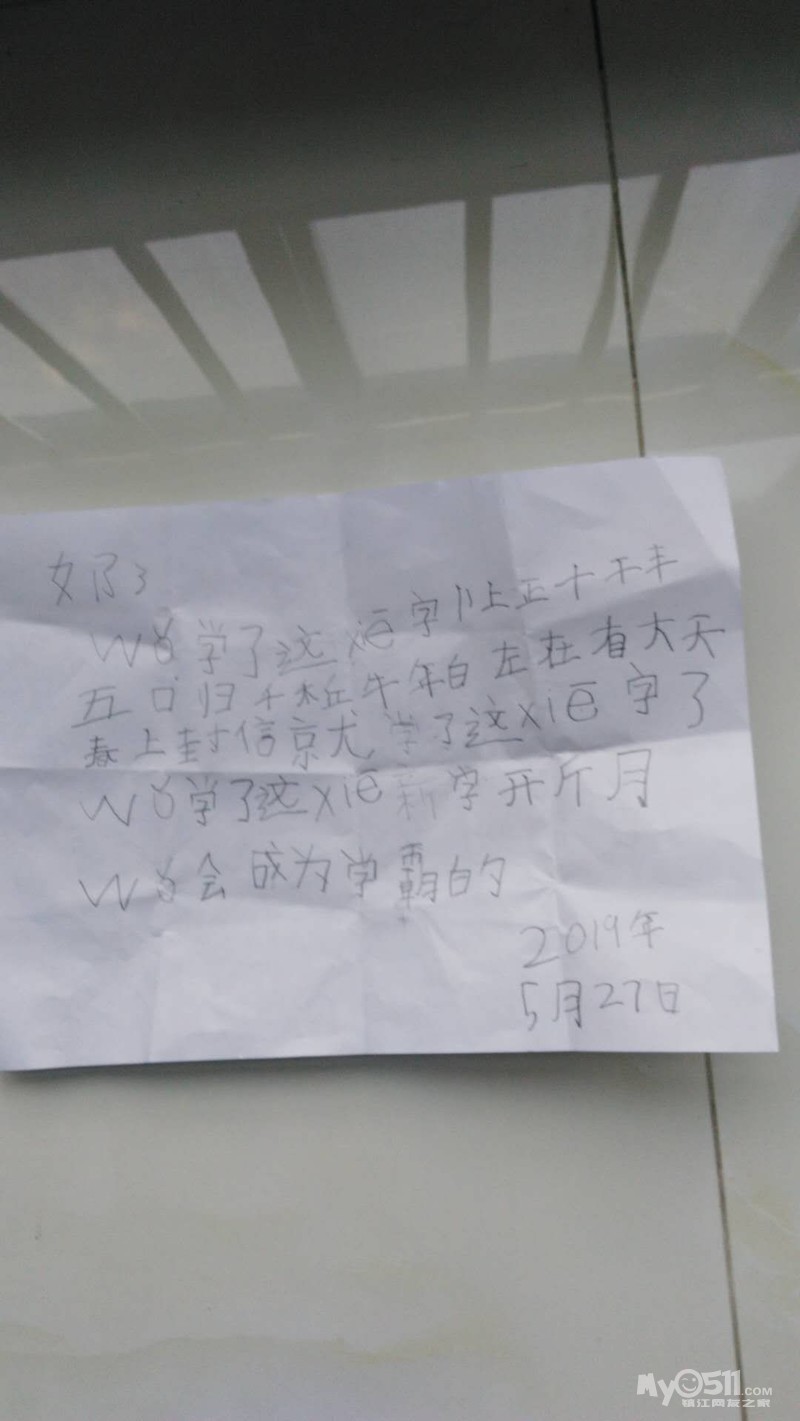 奶
wǒ学了这xiē字 上正十不丰
五口归 牛年白 左在有大天
春上封信京尤学了这xiē字了
wǒ学了这xiē新字开斤月
wǒ会成为学霸的
2019年
5月27日
My0511.com
镇江网友之家